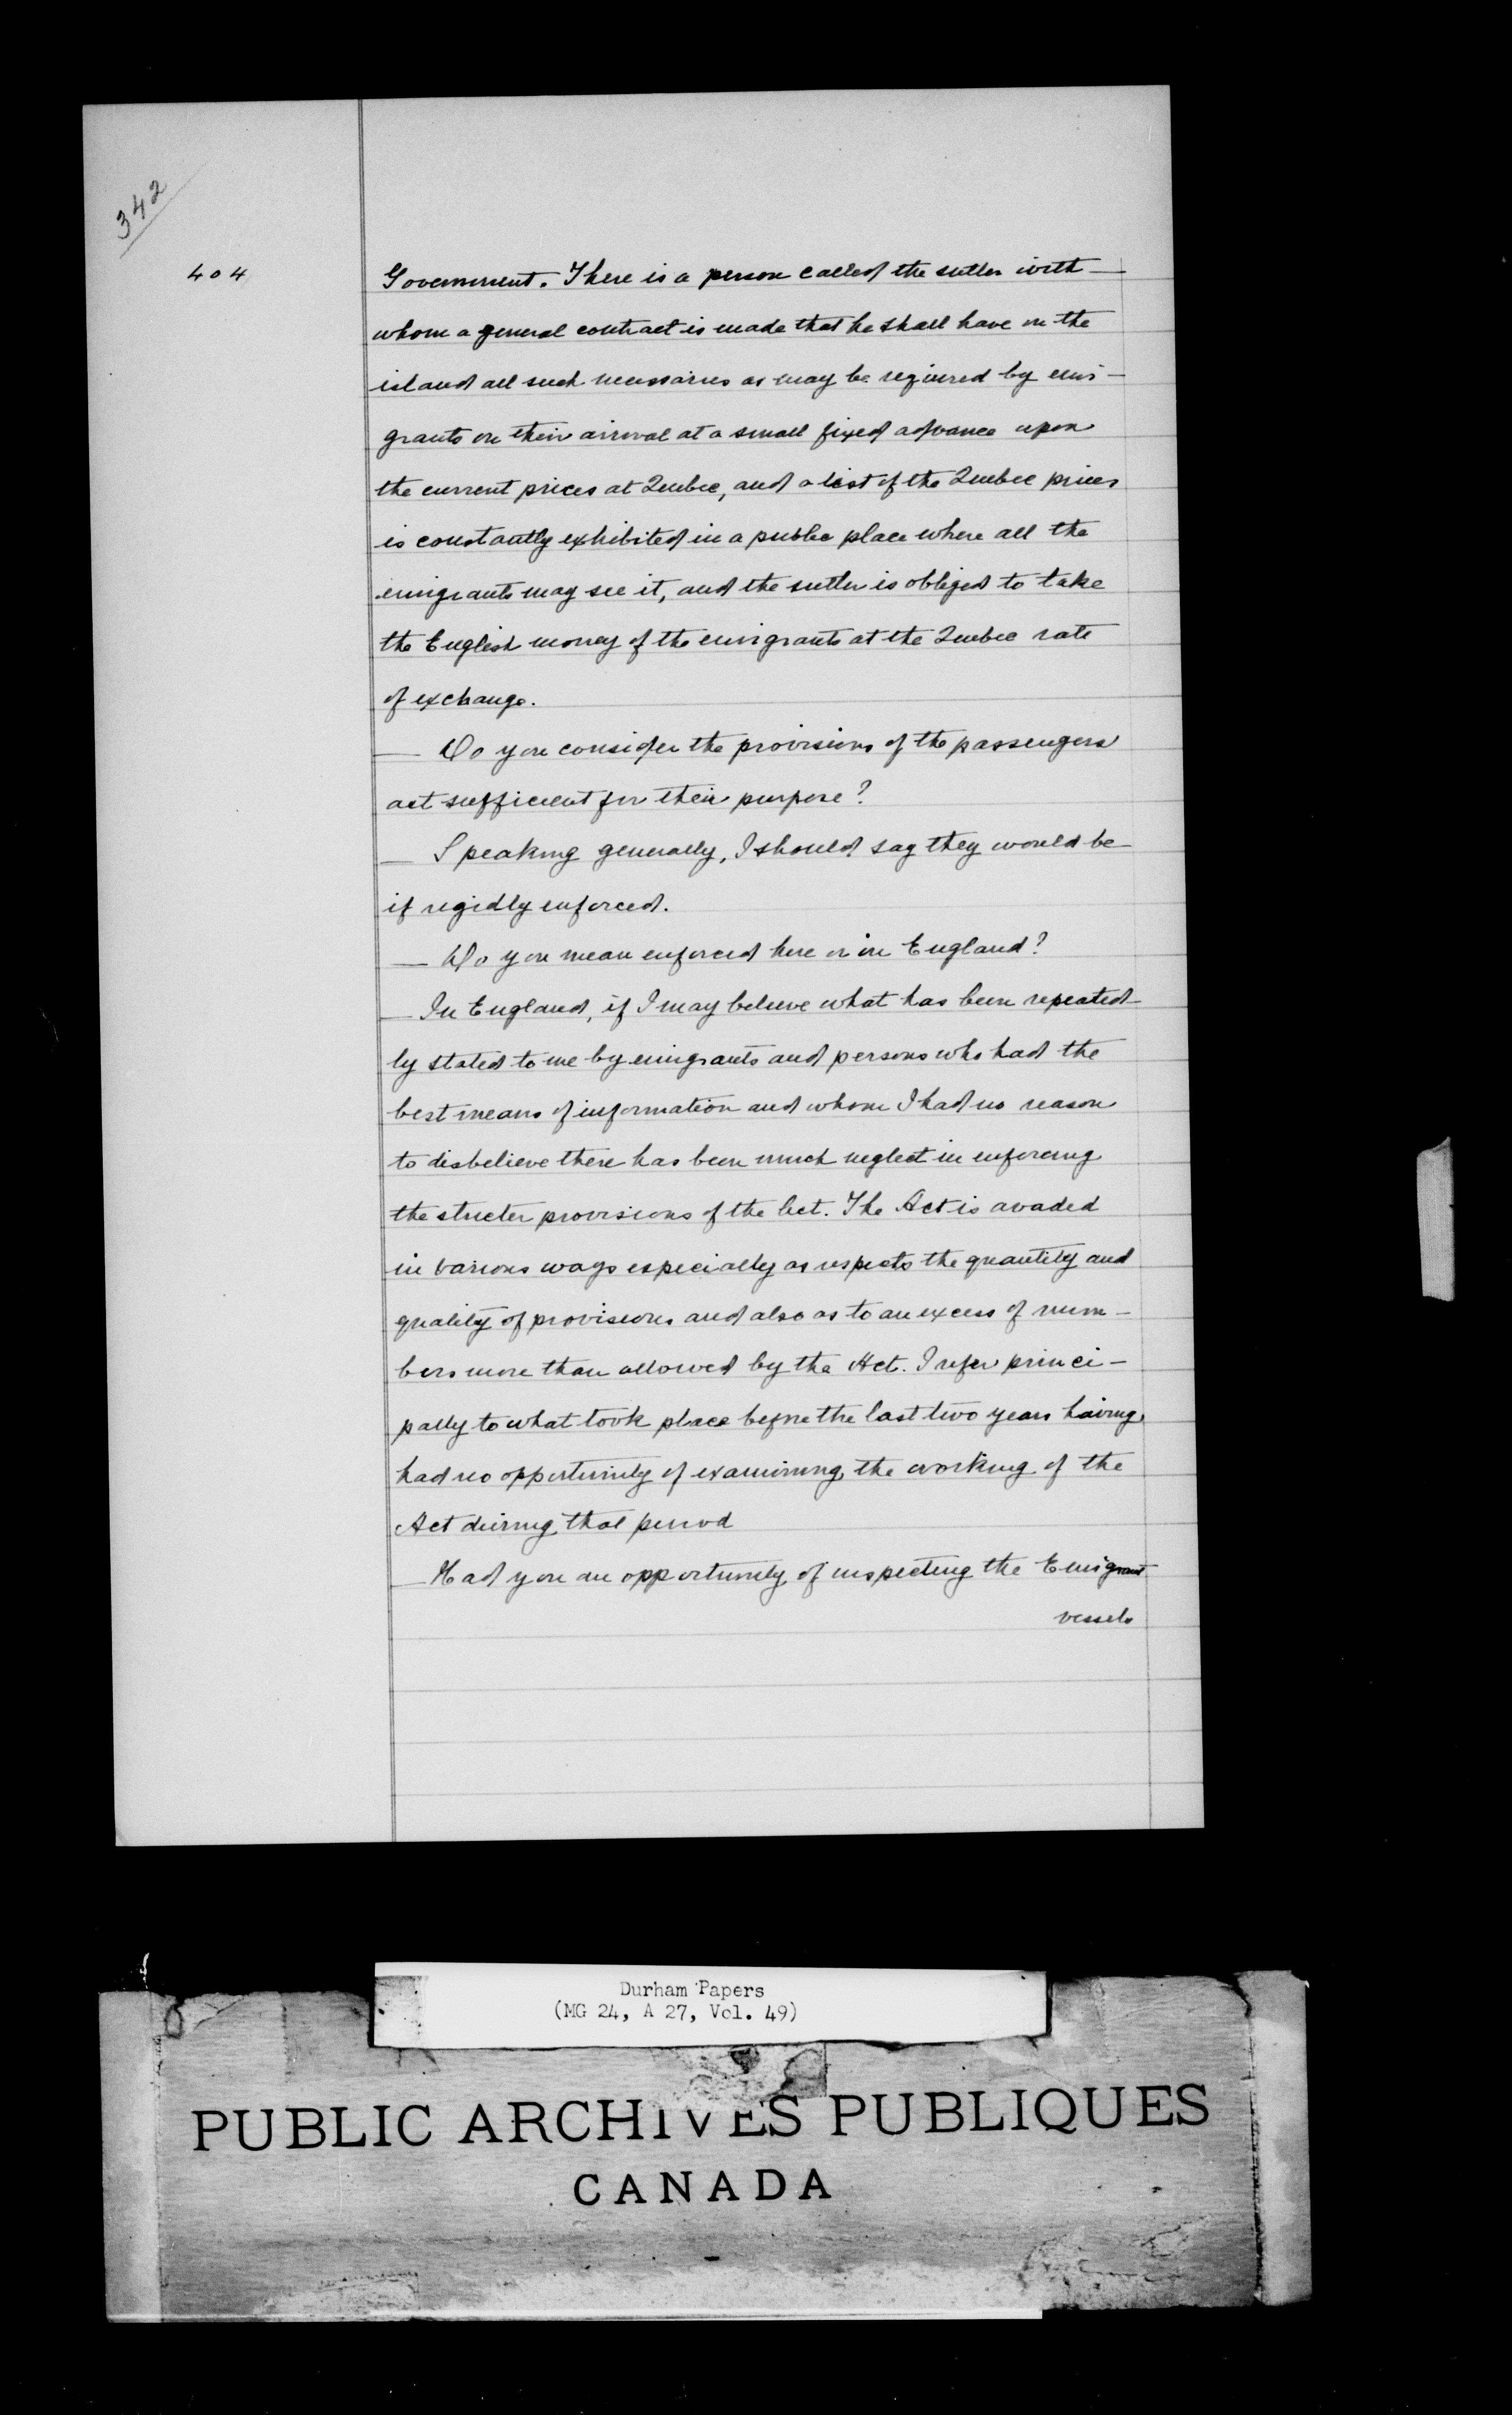 342
404
Government. There is a person called the sutler with
whom a general contract is made that he shall have on the
island all such necessaries as may be required by emi-
grants on their arrival at a small fixed advance upon
the current prices at Quebec, and a list of the Quebec prices
is constantly exhibited in a public place where all the
emigrants may see it, and the sutler is obliged to take
the English money of the emigrants at the Quebec rate
of exchange.
— Do you consider the provisions of the passengers
act sufficient for their purpose?
— Speaking generally, I should say they would be
if rigidly enforced.
— Do you mean enforced here or in England?
— In England, if I may believe what has been repeated-
ly stated to me by emigrants and persons who had the
best means of information and whom I had no reason
to disbelieve there has been much neglect in enforcing
the stricter provisions of the Act. The Act is avaded
in various ways especially as respects the quantity and
quality of provisions and also as to an excess of num-
bers more than allowed by the Act. I refer princi-
pally to what took place before the last two years having
had no opportunity of examining the working of the
Act during that period
— Had you an opportunity of inspecting the Emigrant
vessels
Durham Papers
(MG 24, A 27, Vol. 49)
PUBLIC ARCHIVES PUBLIQUES
CANADA